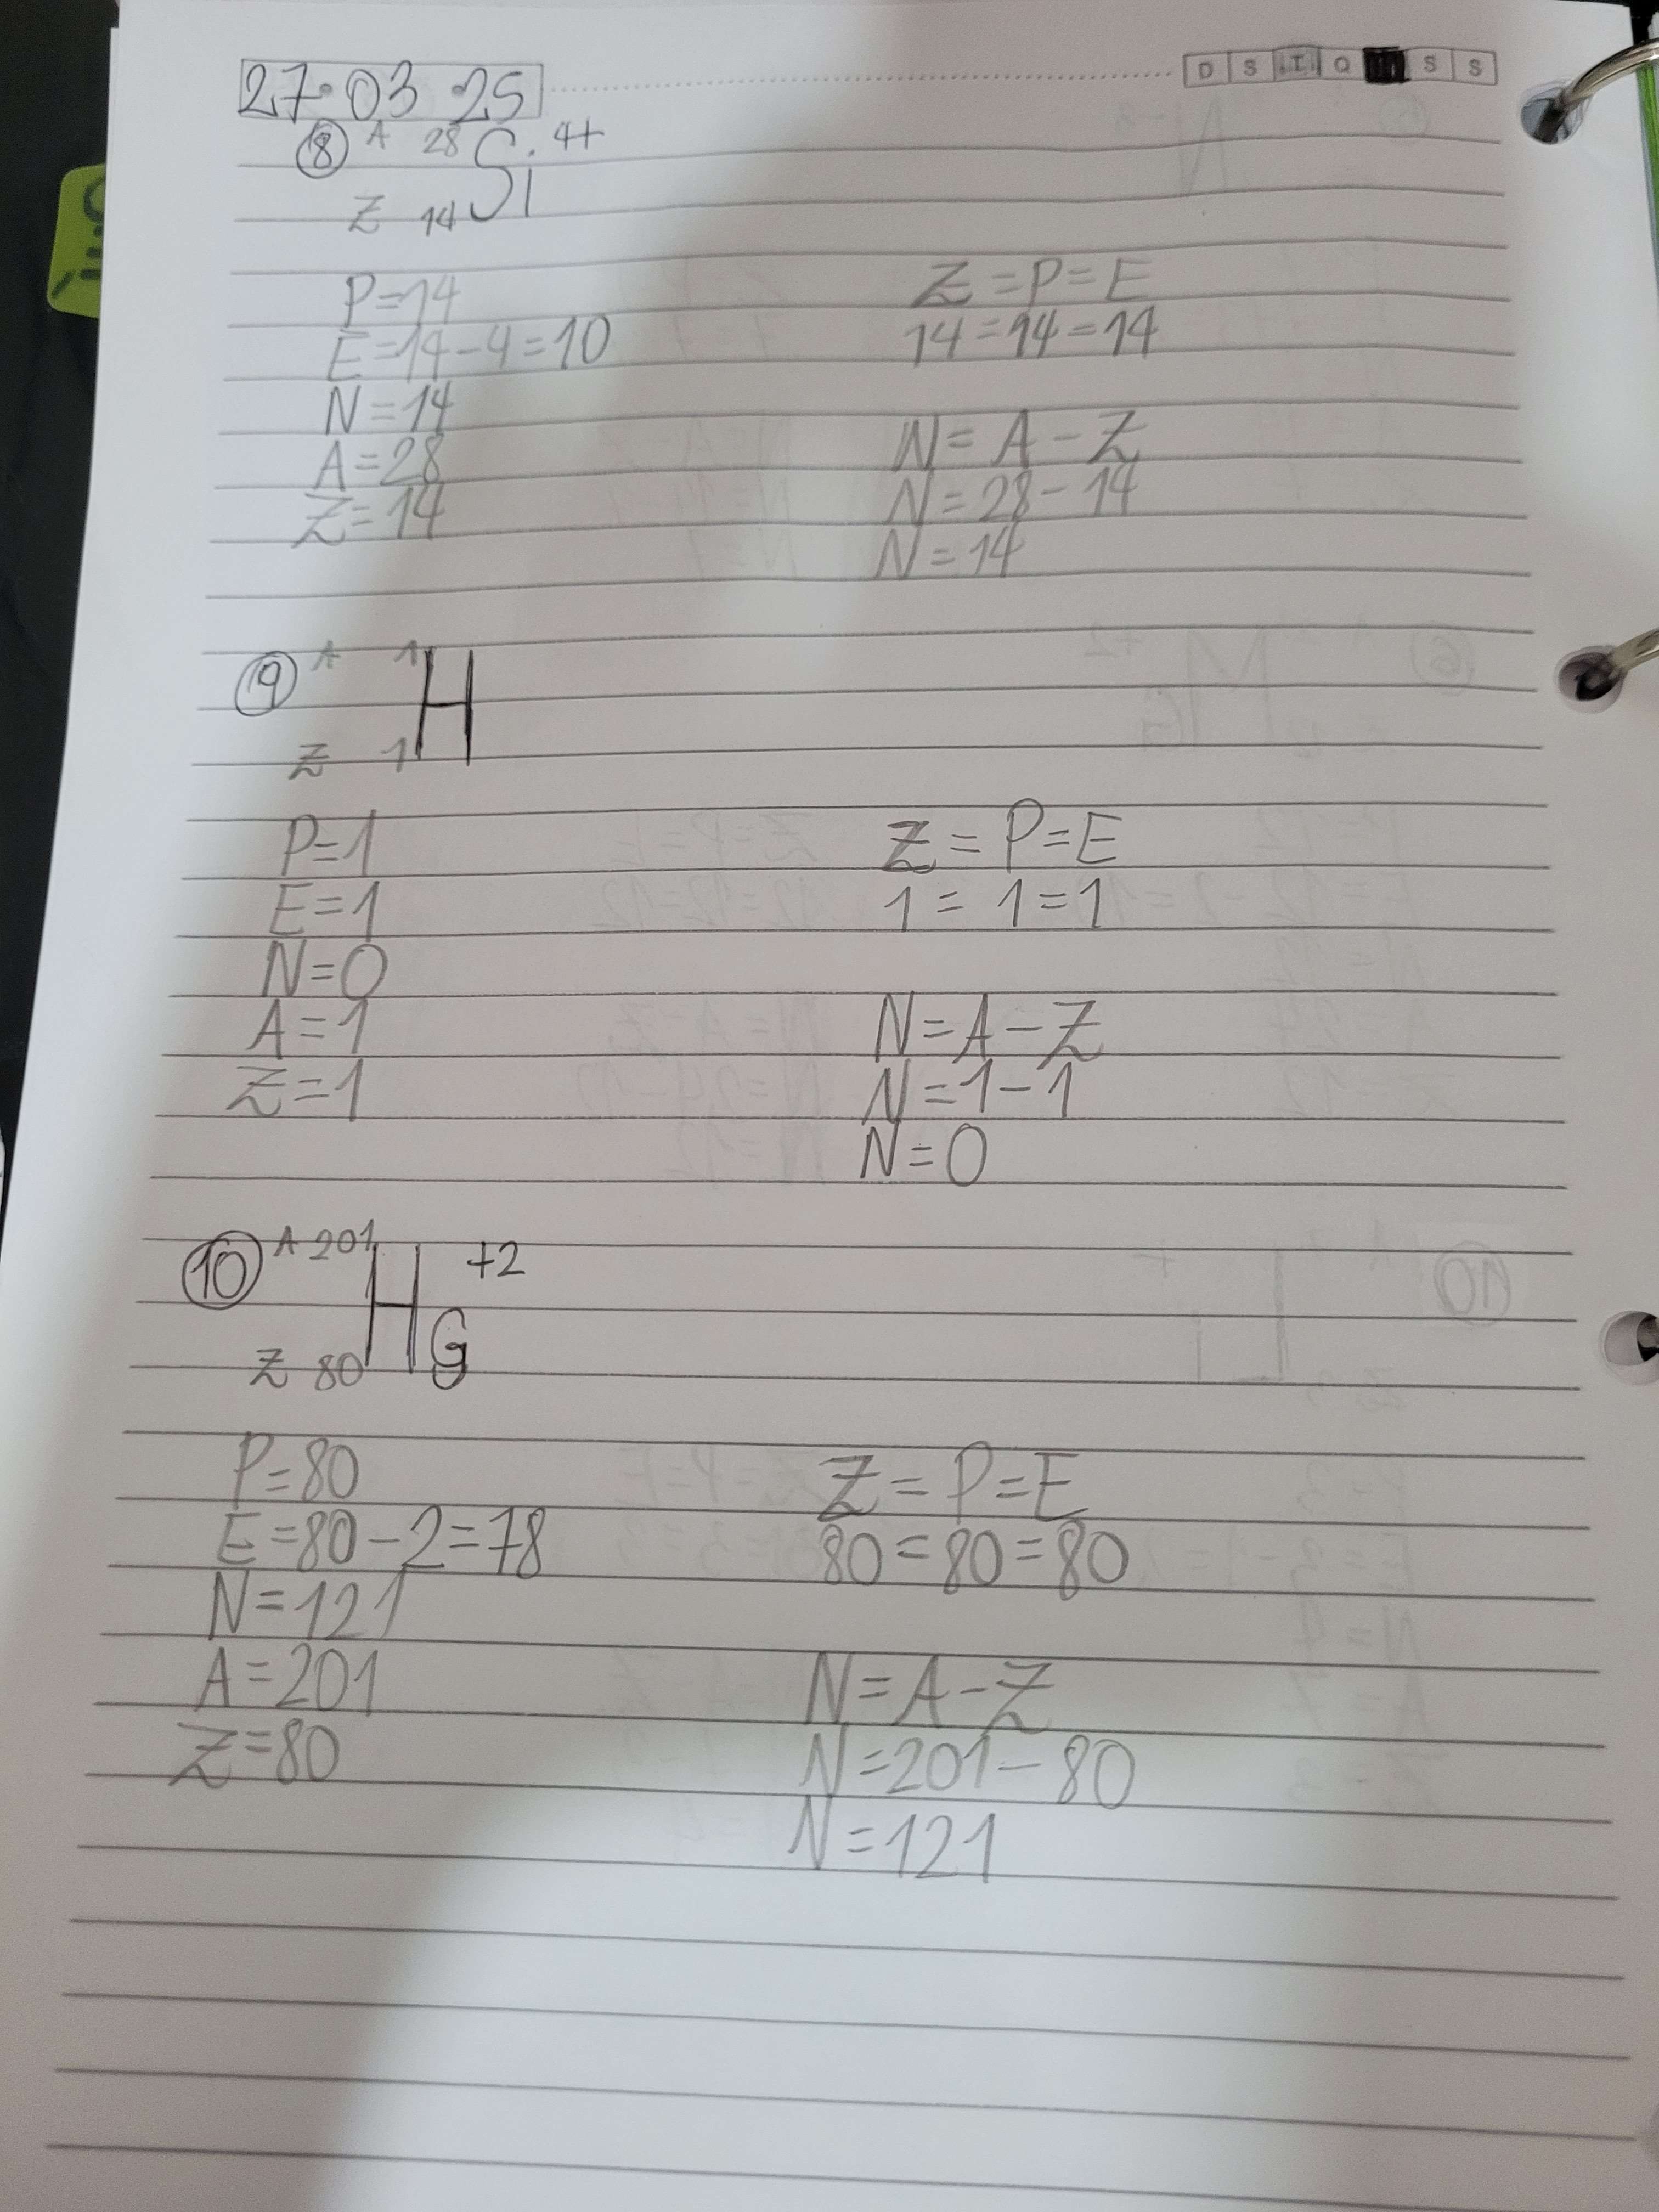 27.03.25
D S T Q S S
8 A 28 Si 4+
Z 14
P=14
E=14-4=10
N=14
A=28
Z=14
Z=P=E
14=14=14
N=A-Z
N=28-14
N=14
9 A 1 H
Z 1
P=1
E=1
N=0
A=1
Z=1
Z=P=E
1=1=1
N=A-Z
N=1-1
N=0
10 A 201 HG +2
Z 80
P=80
E=80-2=78
N=121
A=201
Z=80
Z=P=E
80=80=80
N=A-Z
N=201-80
N=121